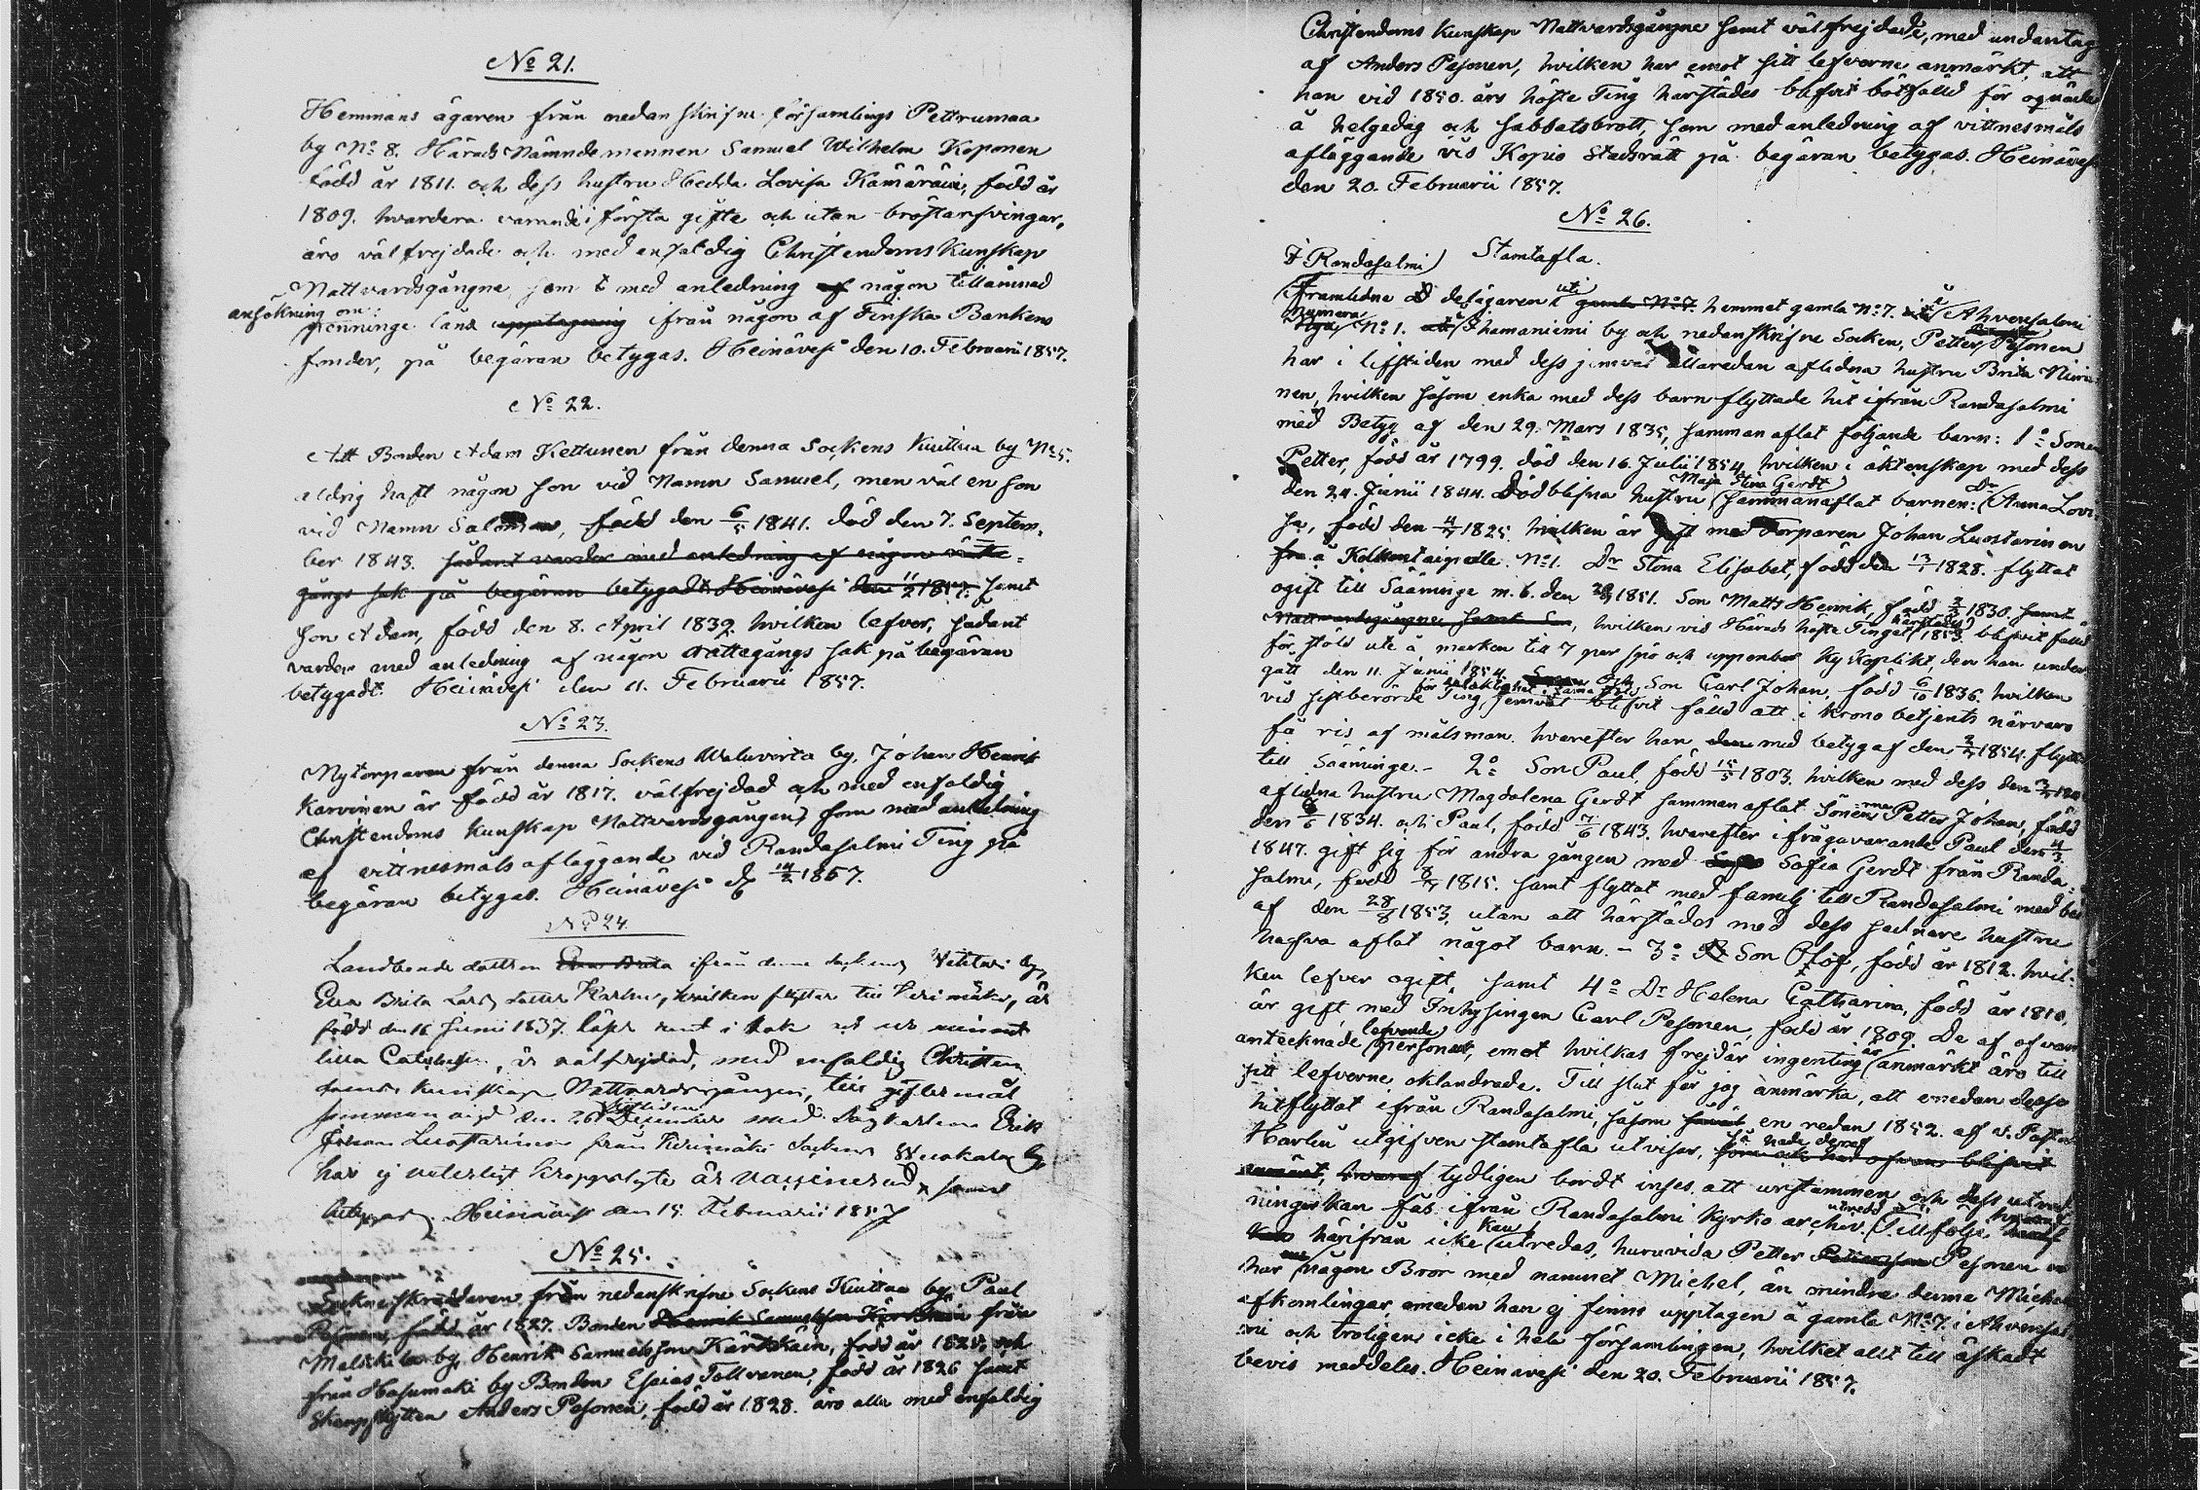 No 21.
Hemmans ägaren från nedanskrifne församlings Pettrumaa
by No 8. Härads Nämndemannen Samuel Wilhelm Koponen
född år 1811. och dess hustru Hedda Lovisa Kämäräin, född år
1809. hvardera varande i första gifte och utan bröstarfvingar,
äro välfrejdade och med enfaldig Christendoms Kunskap
Nattvardsgångne, samt med anledning af någon tillämnad
ansökning om
penninge låns upptagning ifrån någon af Finska Bankens
fonder, på begäran betygas. Heinävesi den 10. Februarii 1857.
No 22.
Att Bonden Adam Kettunen från denna Sockens Kuittua by No 5.
aldrig haft någon son vid Namn Samuel, men väl en son
vid Namn Salomon, född den 6/5 1841. död den 7. Septem-
ber 1843. sådant varder med anledning af någon rätte-
gångs sak på begäran betygadt. Heinävesi den 11/2 1857. samt
son Adam, född den 8. April 1839. hvilken lefver, sådant
varder med anledning af någon rättegångs sak på begäran
betygadt. Heinävesi den 11. Februarii 1857.
No 23.
Nytorparen från denna Sockens Waluvirta by, Johan Henrik
Karvinen är född år 1817. välfrejdad och med enfaldig
Christendoms Kunskap Nattvardsgången, som med anledning
af vittnesmåls afläggande vid Randasalmi Ting på
begäran betygas. Heinävesi d. 14/2 1857.
No 24.
Landbonde dottren Eva Brita ifrån denna Sockens by
Eva Brita Lars dotter hvilken flyttar till Kerimäki, är
född den 16 Junii 1837. läser rent i bok
lilla Catechesen, är välfrejdad, med enfaldig Christen
doms kunskap Nattvardsgången, till giftermål
den 26 December med Erik
Johan Luostarinen från Kerimäki Sockens by
har ej veterligt kroppslyte är vaccinerad, som
betygas. Heinävesi den 15. Februarii 1857
No 25.
Sockneskräddaren från nedanskrifne Sockens Kuittua by, Paul
Pesonen, född år 1827. Bonden Henrik Samuelsson Kärkkäin från
by, Henrik Samuelsson Kärkkäin, född år 1828, och
från Hasumäki by Bonden Esaias Tollvanen, född år 1826 samt
Anders Pesonen, född år 1828. äro alla med enfaldig
Christendoms Kunskap Nattvardsgångne samt välfrejdade, med undantag
af Anders Pesonen, hvilken har emot sitt lefverne anmärkt, att
han vid 1850. års höste Ting härstädes blifvit bötfälld för oqväde
å helgedag och sabbatsbrott, som med anledning af vittnesmåls
afläggande vid Kopio Stadsrätt på begäran betygas. Heinävesi
den 20. Februarii 1857.
No 26.
Stamtafla.
i Randasalmi
Framledne delägaren uti gamla No 7. hemmet gamla No 7. i Ahvensalmi
numera
No 1. Ihamaniemi by och nedanskrifne Socken, Petter Pesonen
har i lifstiden med dess jemväl allaredan aflidna hustru Brita Niini-
nen, hvilken såsom enka med dess barn flyttade hit ifrån Randasalmi
med Betyg af den 29. Mars 1835, samman aflat följande barn: 1o Sonen
Petter, född år 1799. död den 16. Julii 1854, hvilken i äktenskap med dess
Maja Stina Gerdt
den 24. Junii 1844. Dödblifna hustru sammanaflat barnen: Dr Anna Lovi-
sa, född den 4/7 1825. hvilken är gift med Torparen Johan Luostarinen
fra å Kolkontaipale No 1. Dr Stina Elisabet, född den 13/7 1828. flyttat
ogift till Sääminge m. b. den 1851. Son Matts Henrik, född 1830. samt
Nattvardsgångne samt Son, hvilken vid Härads höste Tinget härstädes 1853 blifvit fälld
för stöld ute å marken till 7 par spö och uppenbar Kyrkoplikt, den han under
gått den 11. Junii 1854. och Son Carl Johan, född 6/10 1836. hvilken
för delaktighet i samma
vid sistberörde Ting, jemväl blifvit fälld att i krono betjents närvaro
få ris af målsman. hvarefter han den med betyg af den 1854. flyttat
till Sääminge. – 2o Son Paul, född 15/5 1803. hvilken med dess den
aflidna hustru Magdalena Gerdt samman aflat Sönerna Petter Johan, född
den 1834. och Paul, född 7/6 1843. hvarefter ifrågavarande Paul den
1847. gift sig för andra gången med Sofia Gerdt från Randa-
salmi, född 1815. samt flyttat med familj till Randasalmi med be
af den 28/8 1853, utan att härstädes med dess sednare hustru
hafva aflat något barn. – 3o Son Olof, född år 1812. hvil-
ken lefver ogift, samt 4o Dr Helena Catharina, född år 1810,
är gift med Inhysingen Carl Pesonen, född år 1809. De af ofvan
antecknade lefvande personer, emot hvilkas frejdär ingenting är anmärkt äro till
sitt lefverne oklandrade. Till slut får jag anmärka, att emedan desse
hitflyttat ifrån Randasalmi, såsom en redan 1852. af v. Pastor
Harlin utgifven stamtafla utvisar,
tydligen bordt inses att urstammen och dess utred
ningar kan fås ifrån Randasalmi Kyrko archiv. Tillfölje hvaraf
härifrån icke kan utredas, huruvida Petter Pesonen
har någon Bror med namnet Michel, än mindre denna Michels
afkomlingar, emedan han ej finns upptagen å gamla No 7. i Ahvensal
mi och troligen icke i hela församlingen, hvilket allt till äskadt
bevis meddelas. Heinävesi den 20. Februarii 1857.